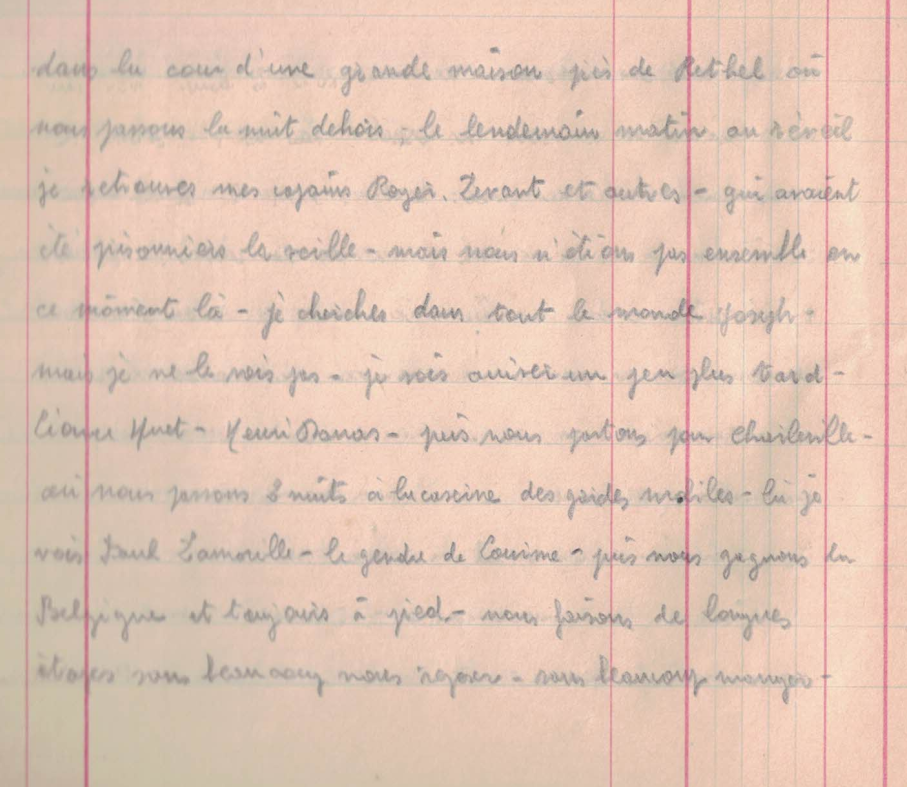 dans la cour d'une grande maison près de Rethel où
nous passons la nuit dehors - le lendemain matin au réveil
je retrouves mes copains Roger. Levant et autres - qui avaient
été prisonniers la veille - mais nous n'étions pas ensemble en
ce moment là - je cherches dans tout le monde Joseph -
mais je ne le vois pas - je vois arriver un peu plus tard -
Huet - Henri - puis nous partons pour Charleville -
où nous passons 2 nuits à la caserne des gardes mobiles - là je
vois Paul Lamorille - le gendre de - puis nous gagnons la
Belgique et toujours à pied - nous faisons de longues
étapes sans beaucoup nous reposer - sans beaucoup manger -